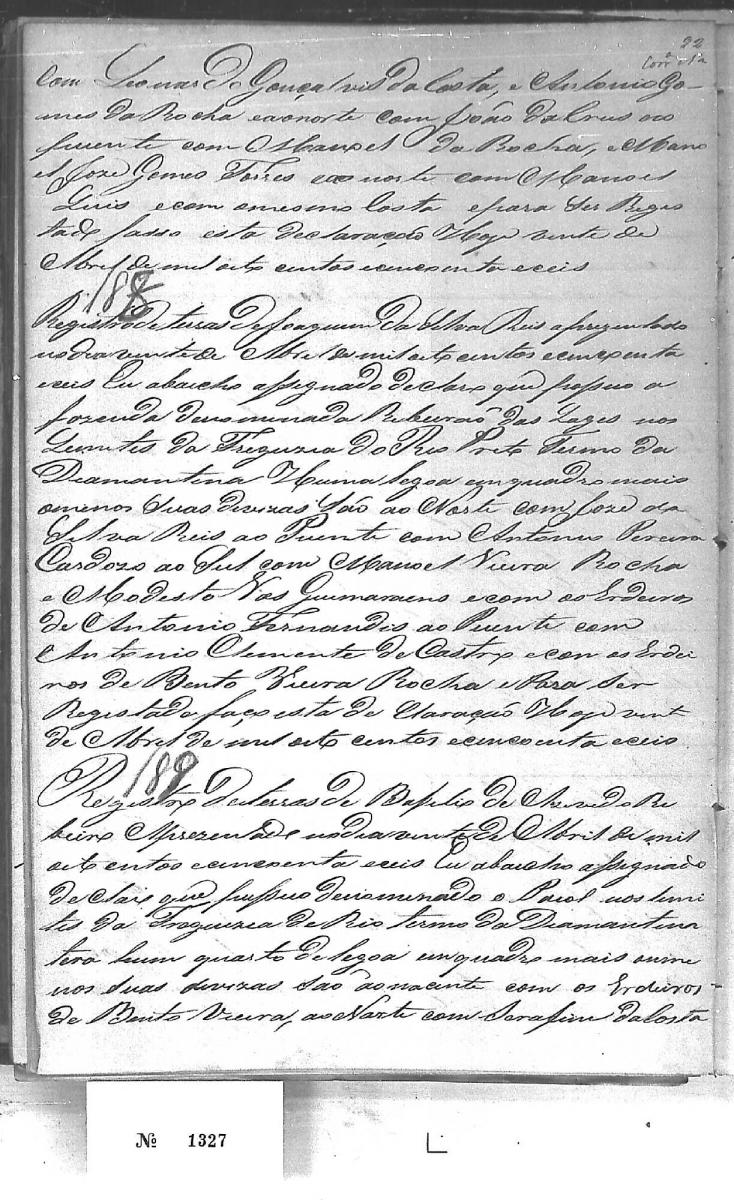 22
com Leonardo Gonçalvis da Costa, e Antonio Go-
mes da Rocha e ao norte com João da Crus ao
puente com Manoel da Rocha, e Mano
el Joze Gomes Torres e ao norte com Manoel
Luis e com o mesmo Costa e para ser Regis
tado fasso esta declaração Hoje vente de
Abril de mil oito centos e cincoenta e ceis
188
Registro de terras de Joaquim da Silva Reis aprezentado
no dia vente de Abril de mil oito centos e cincoenta
e ceis Eu abaicho assignado declaro que possuo a
fazenda denominada Ribeirão das Lages nos
Lemites da Freguzia do Rio Preto Termo da
Diamantina Huma legoa em quadro mais
o menos suas divizas são ao Norte com Joze da
Silva Reis ao Puente com Antonio Pereira
Cardozo ao Sul com Manoel Vieira Rocha
e Modesto Vas Guimaraens e com os Erdeiros
de Antonio Fernandis ao Puente com
Antonio Clemente de Castro e com os Erdei
ros de Bento Vieira Rocha e Para ser
Registado faço esta declaração Hoje vent
de Abril de mil oito centos e cincoenta e ceis
189
Registro de terras de Bazilio de Azevedo Ri
beiro Aprezentado no dia vente de Abril de mil
oito centos e cincoenta e ceis Eu abaicho assignado
declaro que possuo denominado o Paiol nos limi
tes da Freguizia de Rio termo da Diamantina
tera hum quarto de legoa em quadro mais ou me
nos suas divizas são ao nacente com os Erdeiros
de Bento Vieira, ao Norte com Serafim da Costa
№ 1327